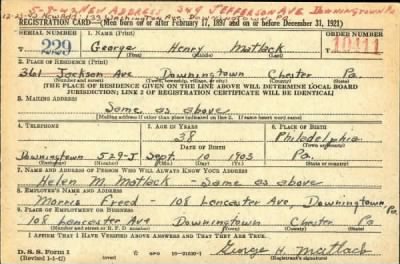 5-8-42 NEW ADDRESS 349 JEFFERSON AVE DOWNINGTOWN PA
12-21-43 NEW ADD-133 Washington Ave Downingtown, Pa.
REGISTRATION CARD—(Men born on or after February 17, 1897 and on or before December 31, 1921)
SERIAL NUMBER 1. NAME (Print) ORDER NUMBER
229 George Henry Matlack 10411
(First) (Middle) (Last)
2. PLACE OF RESIDENCE (Print)
361 Jackson Ave Downingtown Chester Pa.
(Number and street) (Town, township, village, or city) (County) (State)
[THE PLACE OF RESIDENCE GIVEN ON THE LINE ABOVE WILL DETERMINE LOCAL BOARD
JURISDICTION; LINE 2 OF REGISTRATION CERTIFICATE WILL BE IDENTICAL]
3. MAILING ADDRESS
Same as above
[Mailing address if other than place indicated on line 2. If same insert word same]
4. TELEPHONE 5. AGE IN YEARS 6. PLACE OF BIRTH
38 Philadelphia
DATE OF BIRTH (Town or county)
Downingtown 529-J Sept. 10 1903 Pa.
(Exchange) (Number) (Mo.) (Day) (Yr.) (State or country)
7. NAME AND ADDRESS OF PERSON WHO WILL ALWAYS KNOW YOUR ADDRESS
Helen M Matlack - Same as above
8. EMPLOYER'S NAME AND ADDRESS
Morris Freed - 108 Lancaster Ave, Downingtown Pa.
9. PLACE OF EMPLOYMENT OR BUSINESS
108 Lancaster Ave Downingtown Chester Pa.
(Number and street or R. F. D. number) (Town) (County) (State)
I AFFIRM THAT I HAVE VERIFIED ABOVE ANSWERS AND THAT THEY ARE TRUE.
D. S. S. Form 1 George H. Matlack
(Revised 1-1-42) (over) (Registrant's signature)